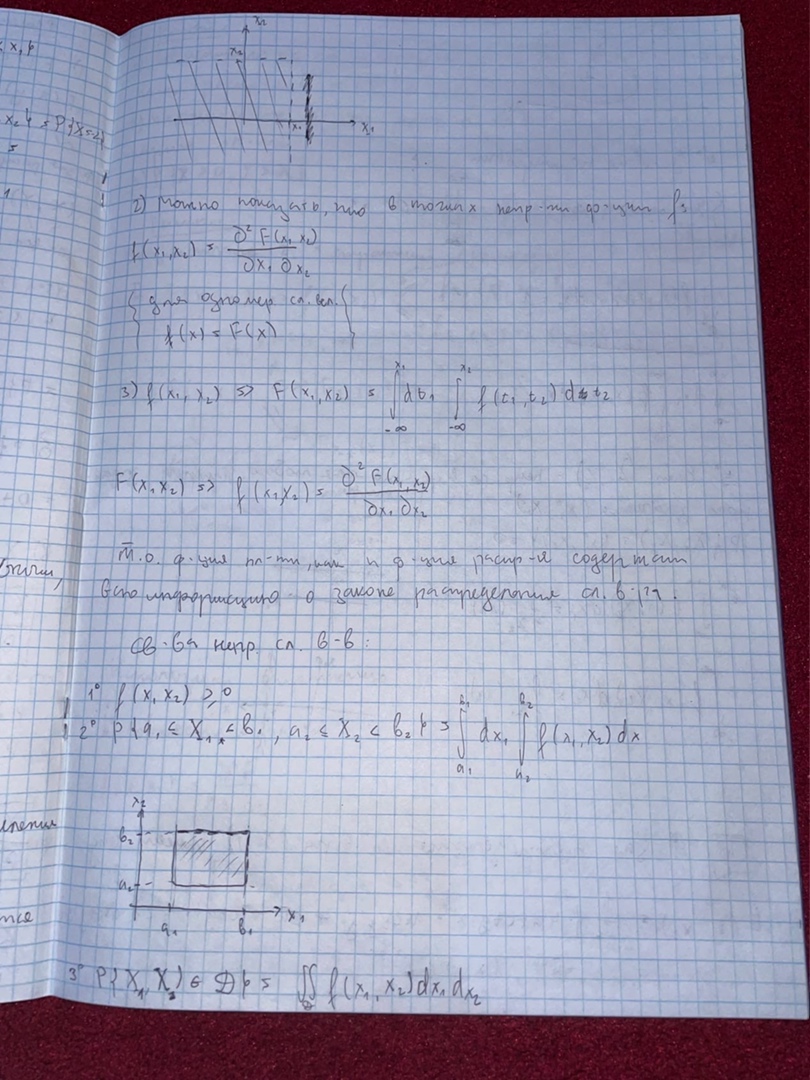 x₂
x₂
x₁ x₁
2) Можно показать, что в точках непр-ти ф-ции f:
f(x₁,x₂) = ∂²F(x₁x₂) / ∂x₁ ∂x₂
{ для одномер сл. вел. }
f(x) = F(x)
3) f(x₁, x₂) => F(x₁,x₂) = ∫_{-∞}^{x₁} dt₁ ∫_{-∞}^{x₂} f(t₁,t₂) dt₂
F(x₁x₂) => f(x₁x₂) = ∂²F(x₁,x₂) / ∂x₁ ∂x₂
Т.о. ф-ция пл-ти, как и ф-ция распр-я содержат
всю информацию о законе распределения сл. в-ра.
Св-ва непр. сл. в-в:
1° f(x₁x₂) ≥ 0
2° P{a₁ ≤ X₁ < b₁, a₂ ≤ X₂ < b₂} = ∫_{a₁}^{b₁} dx₁ ∫_{a₂}^{b₂} f(x₁,x₂) dx
x₂
b₂
a₂
a₁ b₁ x₁
3° P{X₁, X₂) ∈ D} = ∬_D f(x₁,x₂) dx₁ dx₂